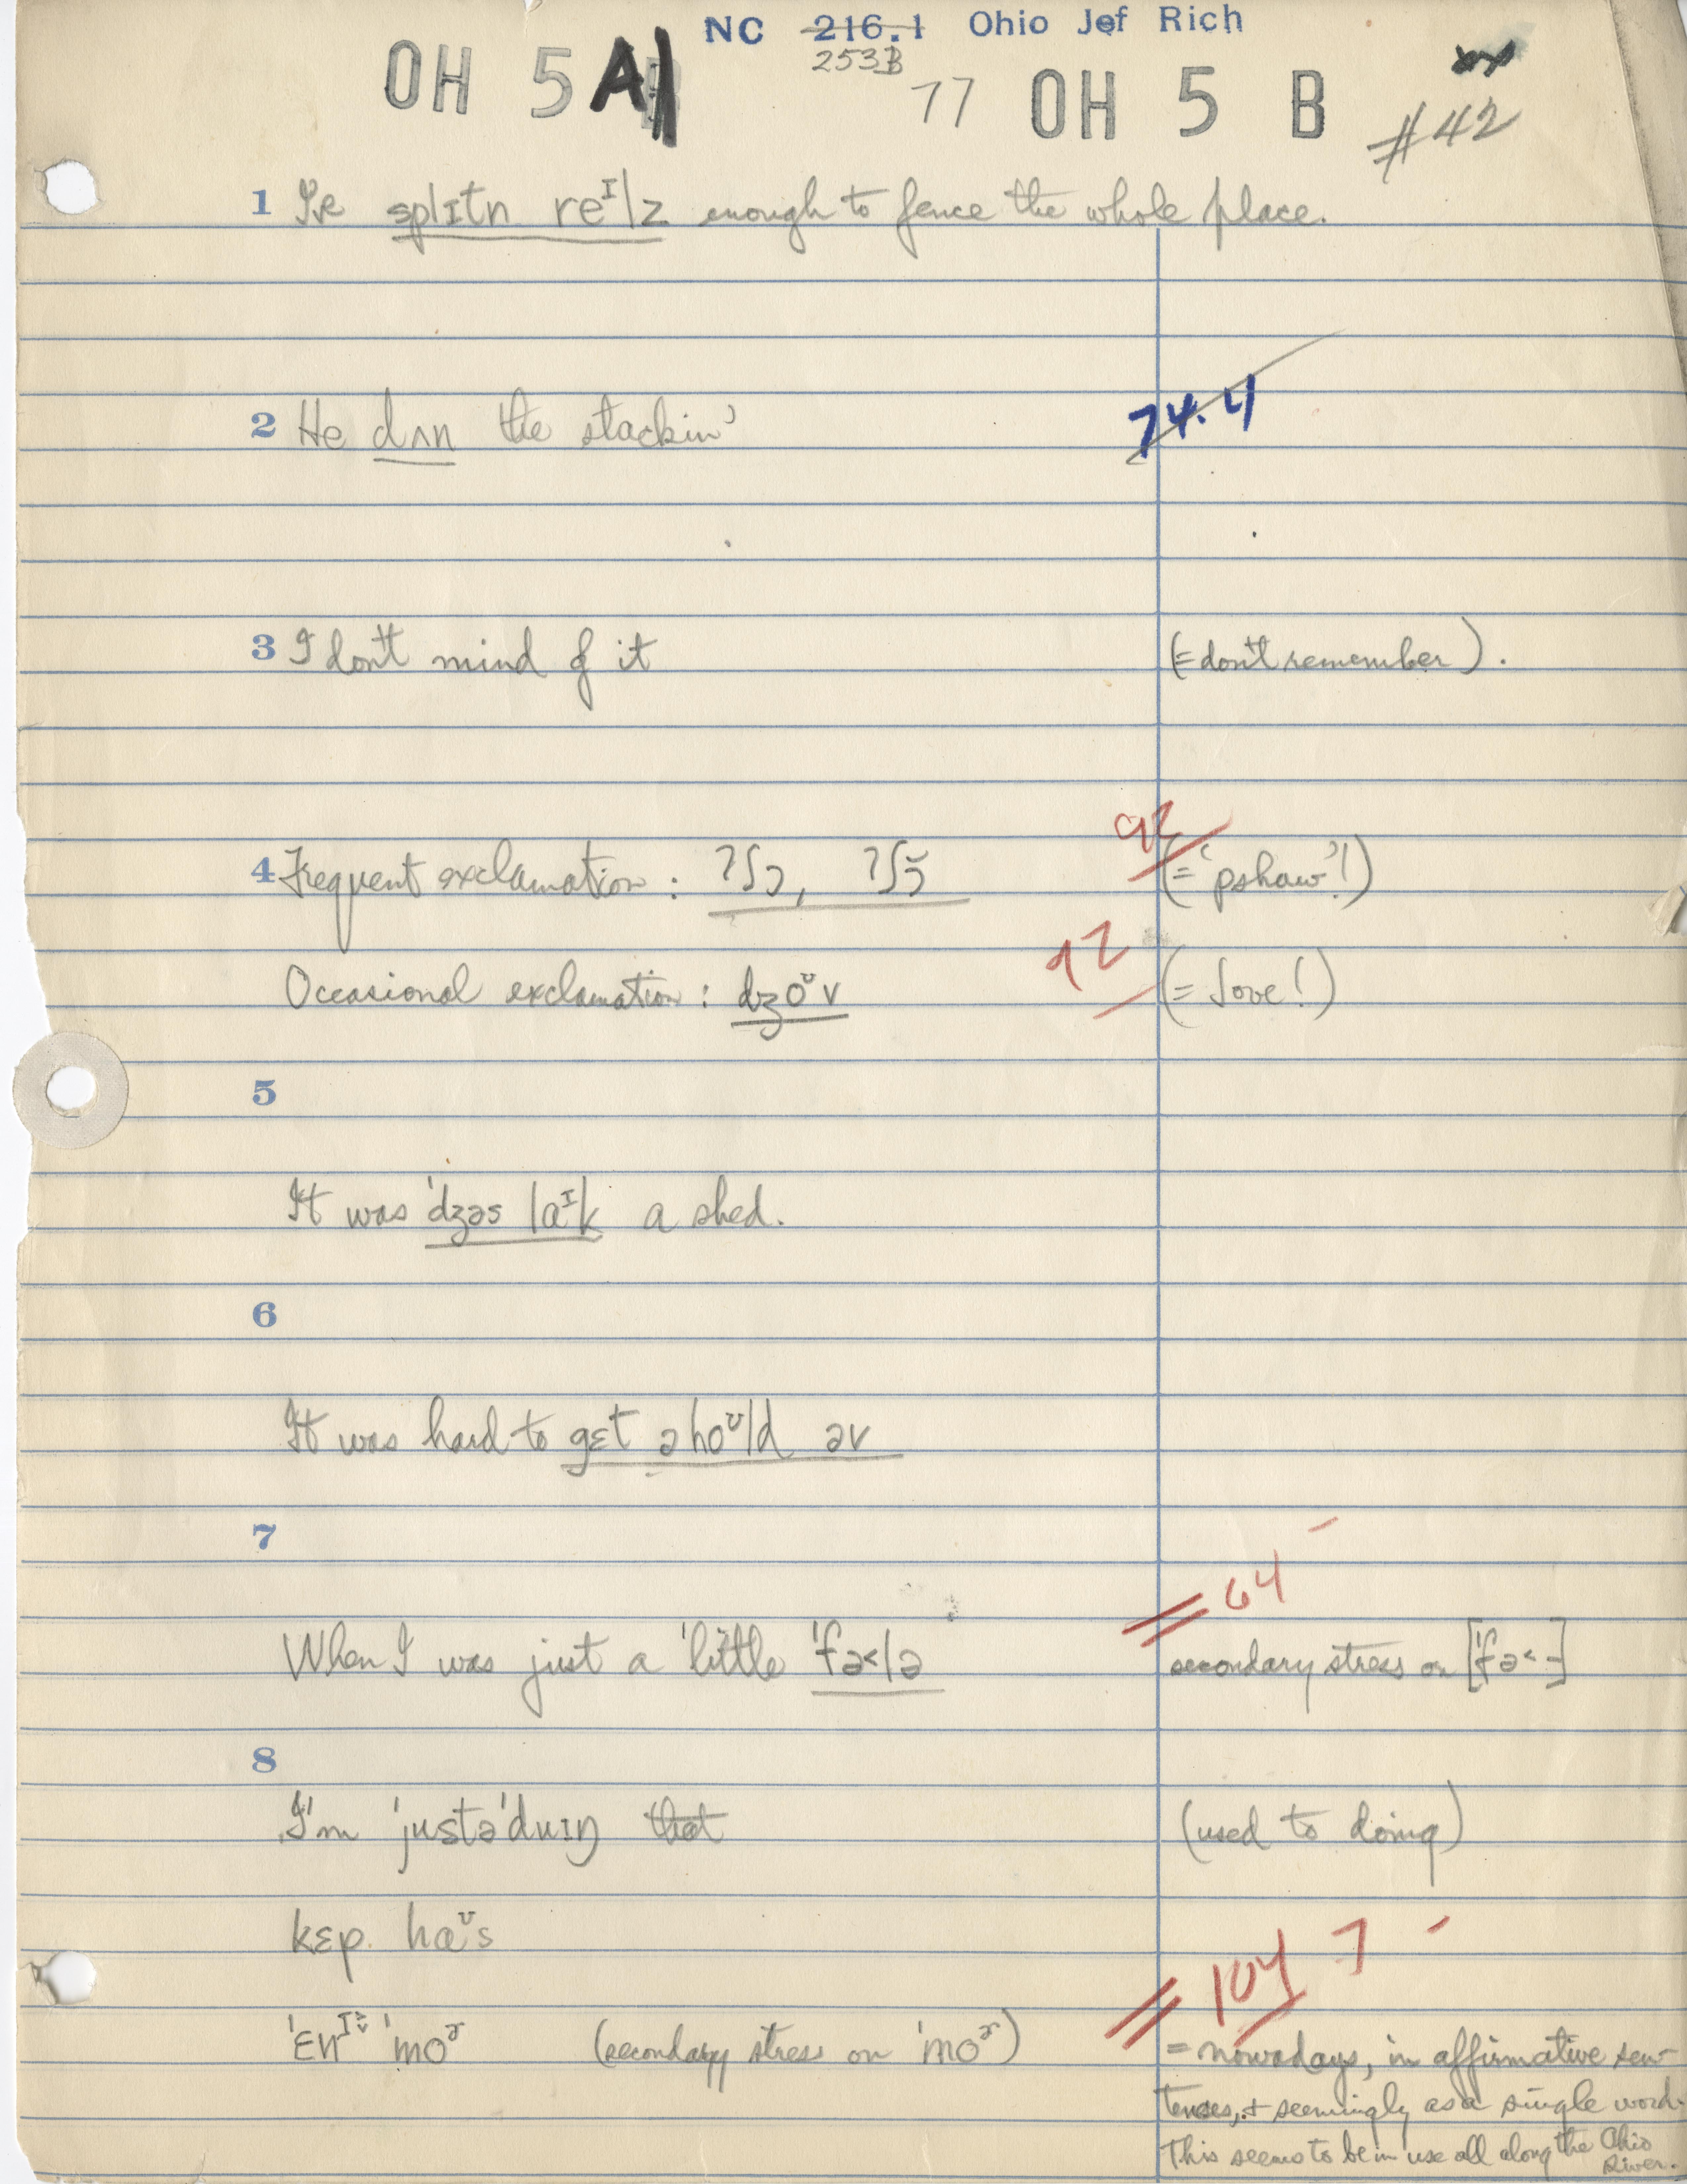 NC 216.1 Ohio Jef Rich
253B
OH 5 A 77 OH 5 B #42
1 I've splɪtn reᶦlz enough to fence the whole place.
2 He dʌn the stackin' 74.4
3 I don't mind of it (= don't remember).
4 Frequent exclamation: ʔʃɔ, ʔʃɔ̃ 92 (= 'pshaw'!)
Occasional exclamation: dʒoᶷv 92 (= Jove!)
5
It was 'dʒəs laᶦk a shed.
6
It was hard to gɛt əhoᶷld əv
7
64
When I was just a 'little 'fə<lə secondary stress on ['fə<-]
8
I'm 'justə'duɪŋ that (used to doing)
kɛp haᶷs
104 7
'ɛnᶦ 'moᵊ (secondary stress on 'moᵊ) = nowadays, in affirmative sen-
tences, & seemingly as a single word.
This seems to be in use all along the Ohio
River.